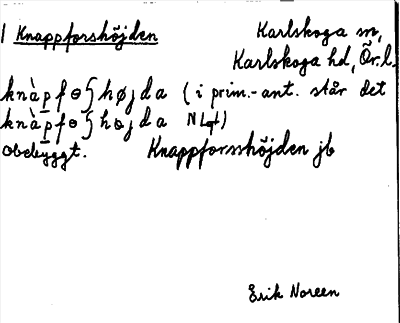 1 Knappforshöjden Karlskoga sn,
Karlskoga hd, Ör. l.
knàpfɵʃhøjda (i prim.-ant. står det
knàpfɵʃhɵjda
obebyggt. Knappforsshöjden jb
Erik Noreen